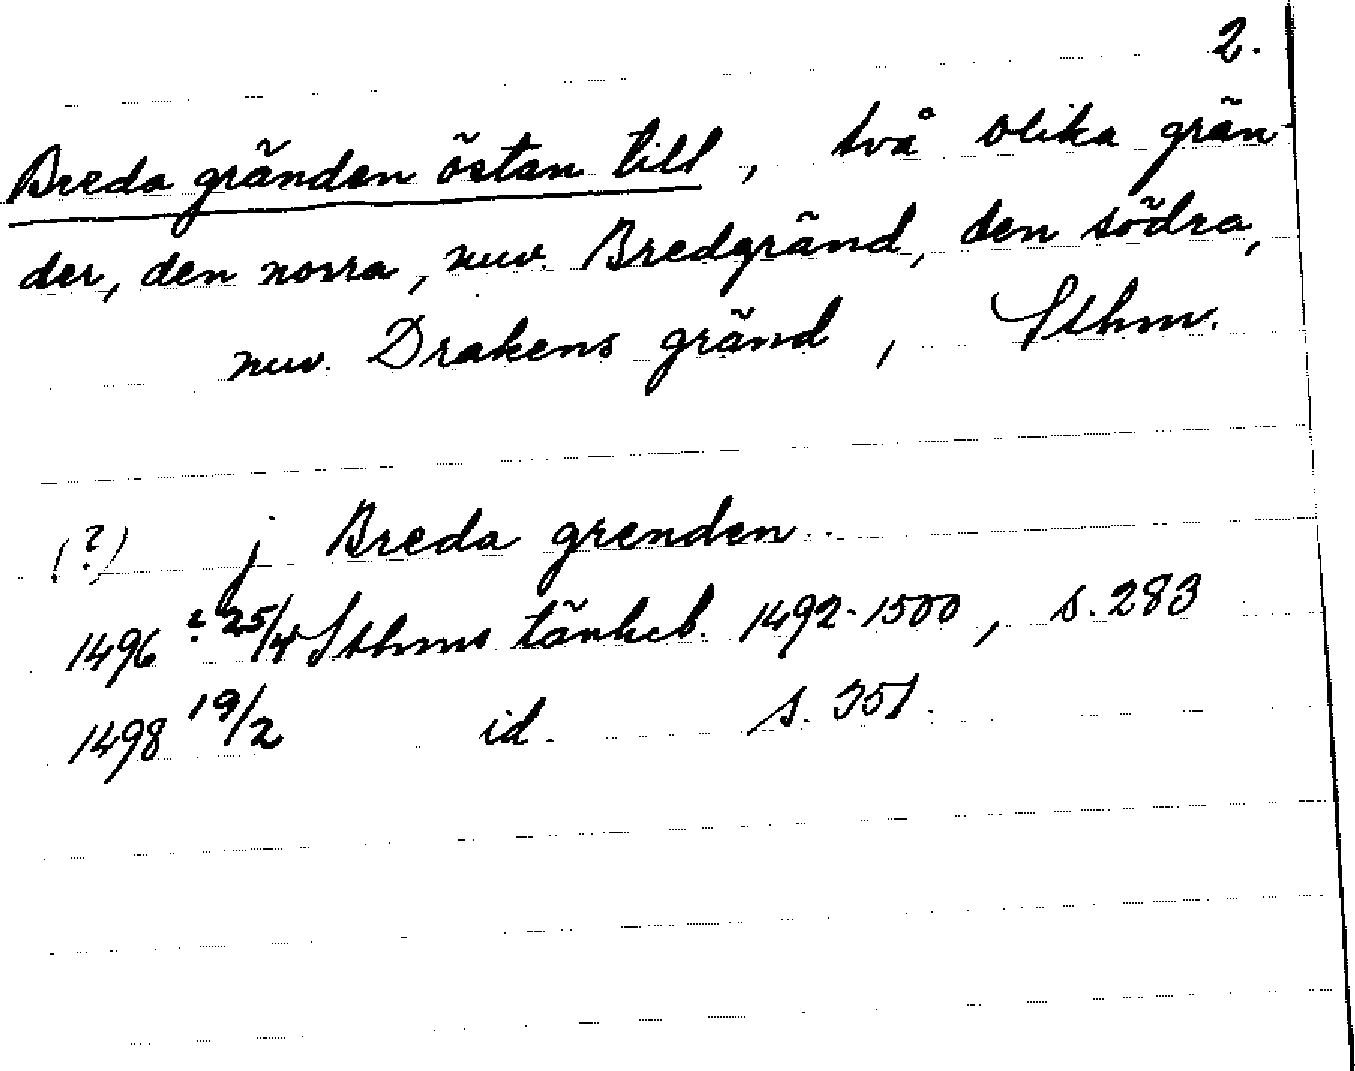 2.
Breda gränden östan till, två olika grän-
der, den norra, nuv. Bredgränd, den södra,
nuv. Drakens gränd, Sthm.
(?) j Breda grenden
1496 ? 25/4 Sthms tänkeb. 1492-1500, s. 283
1498 19/2 id. s. 351.